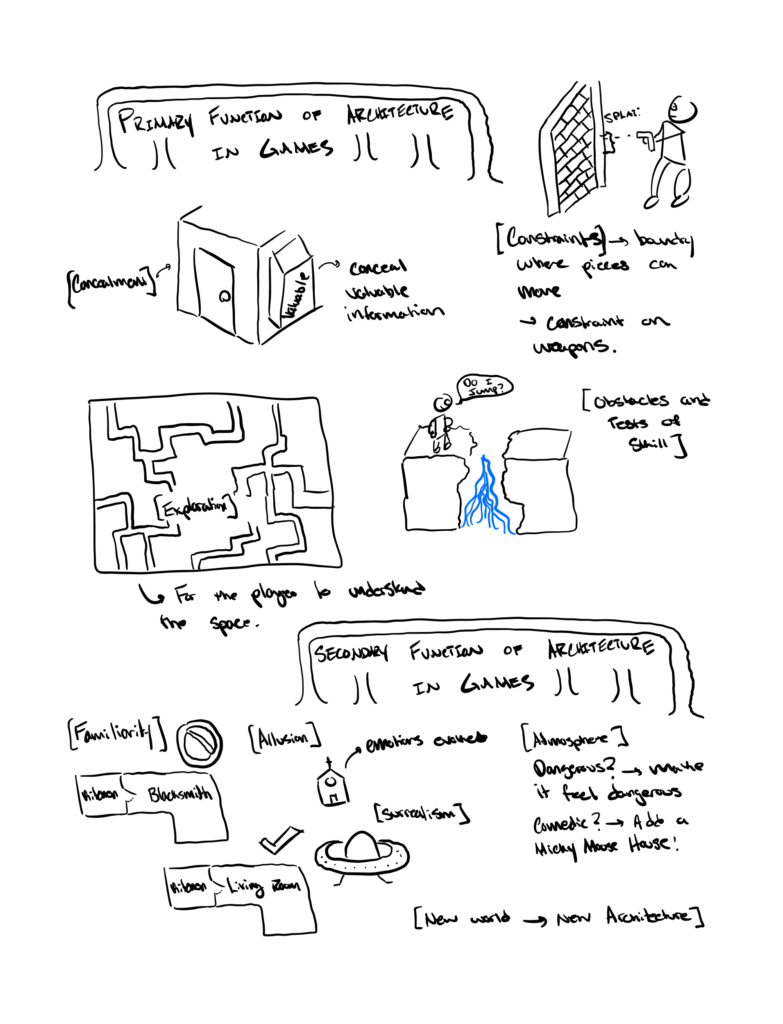 PRIMARY FUNCTION OF ARCHITECTURE
IN GAMES
SPLAT!
[Constraints] → boundry
where pieces can
move
→ constraint on
weapons.
[Concealment] →
Valuable
→ conceal
valuable
information
Do I
Jump?
[Obstacles and
Tests of
Skill]
[Exploration]
↳ For the player to understand
the space.
SECONDARY FUNCTION OF ARCHITECTURE
IN GAMES
[Familiarity]
[Allusion]
→ emotions evoked
[Atmosphere]
Dangerous? → make
it feel dangerous
Comedic? → Add a
Micky Mouse House!
Blacksmith
[Surrealism]
Living Room
[New world → New Architecture]